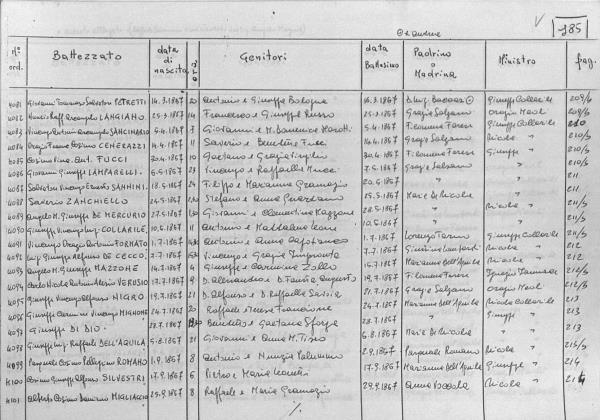 185
N° ord. Battezzato data di nascita ora Genitori data Battesimo Padrino o Madrina Ministro pag.
4081 Giovanni Tommaso Salvatore PETRETTI 14.3.1867 20 Antonio e Giuseppa Bologna 16.3.1867 Giuseppe Collarile 209/b
4082 LANGIANO 25.3.1867 14 Francesco e Giuseppa Russo 25.3.1867 Grazia Salzano Orazio Meoli 209/b
4083 Vincenzo Antonio Arcangelo SANCINARIO 5.4.1867 3 Giovanni e M. Domenica 5.4.1867 Filomena Farese Giuseppe Collarile 210
4084 Orazio Franco Cosimo CENERAZZI 14.4.1867 11 Saverio e Benedetta Fucci 14.4.1867 Grazia Salzano Nicola " 210/b
4085 Cosimo Ant. FUCCI 30.4.1867 10 Gaetano e Grazia 30.4.1867 Filomena Farese Giuseppe " 210/b
4086 Giovanni Giuseppe LAMPARELLI 6.5.1867 23 Vincenzo e Raffaella 7.5.1867 Grazia Salzano " 210/b
4087 Salvatore Vincenzo Ernesto SANNINI 18.5.1867 24 Filippo e Marianna Gramazio 20.5.1867 " " 211
4088 Saverio ZANCHIELLO 24.5.1867 Stefano e Anna 25.5.1867 Maria De Nicola " 211
4089 Angelo M. Giuseppe DE MERCURIO 27.5.1867 Giovanni e Clementina Mazzone 28.5.1867 " Nicola " 211/b
4090 Giuseppe Vincenzo Luigi COLLARILE 10.5.1867 11 Antonio e Maddalena Leone 10.5.1867 " " 211/b
4091 Vincenzo Orazio Antonio FORNATO 1.7.1867 Antonio e Anna Capobianco 1.7.1867 Lorenzo Farina Giuseppe Collarile 211/b
4092 Luigi Giuseppe Alfonso DE CECCO 7.7.1867 Vincenzo e Grazia Impronta 7.7.1867 Giustina Lamparelli Nicola " 212
4093 Angelo M. Giuseppe MAZZONE 14.7.1867 4 Giuseppe e Carmina Zollo 15.7.1867 Marianna Dell'Aquila " 212
4094 Carlo Nicola Antonio Alessio VERUSIO 17.7.1867 9 D. Alessandro e D. Fausta Augusto 19.7.1867 Filomena Farese Ignazio 212/b
4095 Giuseppe Vincenzo Alfonso NIGRO 19.7.1867 21 D. Alfonso e D. Raffaella Savoia 21.7.1867 Grazia Salzano Orazio Meoli 212/b
4096 Giuseppe Carmine Vincenzo MIGNONE 24.7.1867 20 Raffaele Maria Francesca 24.7.1867 Marianna Dell'Aquila Nicola Collarile 213
4097 Giuseppe DI DIO 28.7.1867 Benedetto e Gaetana Sforza 28.7.1867 " Giuseppe " 213
4098 Giuseppe Luigi Raffaele DELL'AQUILA 5.8.1867 21 Giovanni e Anna M. Tiso 6.8.1867 Maria De Nicola " 213
4099 Pasquale Cosimo Pellegrino ROMANO 1.9.1867 8 Antonio e Nunzia Palummo 2.9.1867 Pasquale Romano Nicola " 213/b
4100 Cosimo Giuseppe Alfonso SILVESTRI 17.9.1867 6 Pietro e Maria 17.9.1867 Marianna Dell'Aquila Giuseppe " 214
4101 Alberto Cosimo Damiano MIGLIACCIO 25.9.1867 8 Raffaele e Maria Gramazio 29.9.1867 Anna Nicola " 214